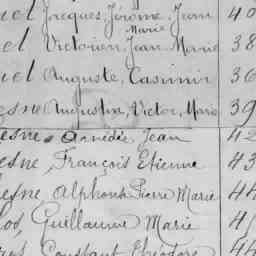 uel Jacques, Jérôme, Jean 40
Marie
el Victorien, Jean Marie 38
uel Auguste, Casimir 36
esne Augustin, Victor, Marie 39
esne Amédée, Jean 42
esne, François Etienne 43
esne Alphonse Pierre Marie 44
los, Guillaume Marie
Constant Théodore 44